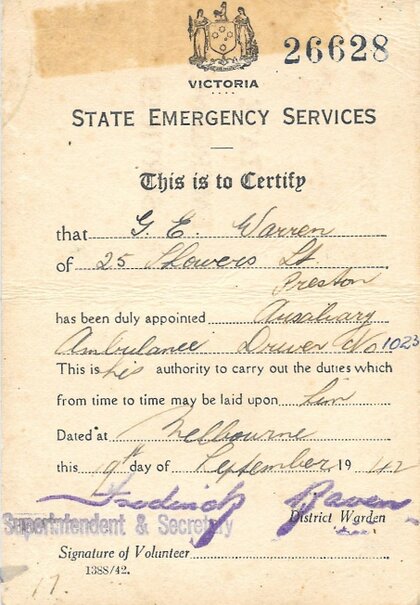 26628
VICTORIA
STATE EMERGENCY SERVICES
This is to Certify
that G. E. Warren
of 25 Showers St.
Preston
has been duly appointed Auxiliary
Ambulance Driver No 1023
This is his authority to carry out the duties which
from time to time may be laid upon him
Dated at Melbourne
this 9th day of September, 1942
Frederick Raven
Superintendent & Secretary District Warden
Signature of Volunteer
1388/42.
17.